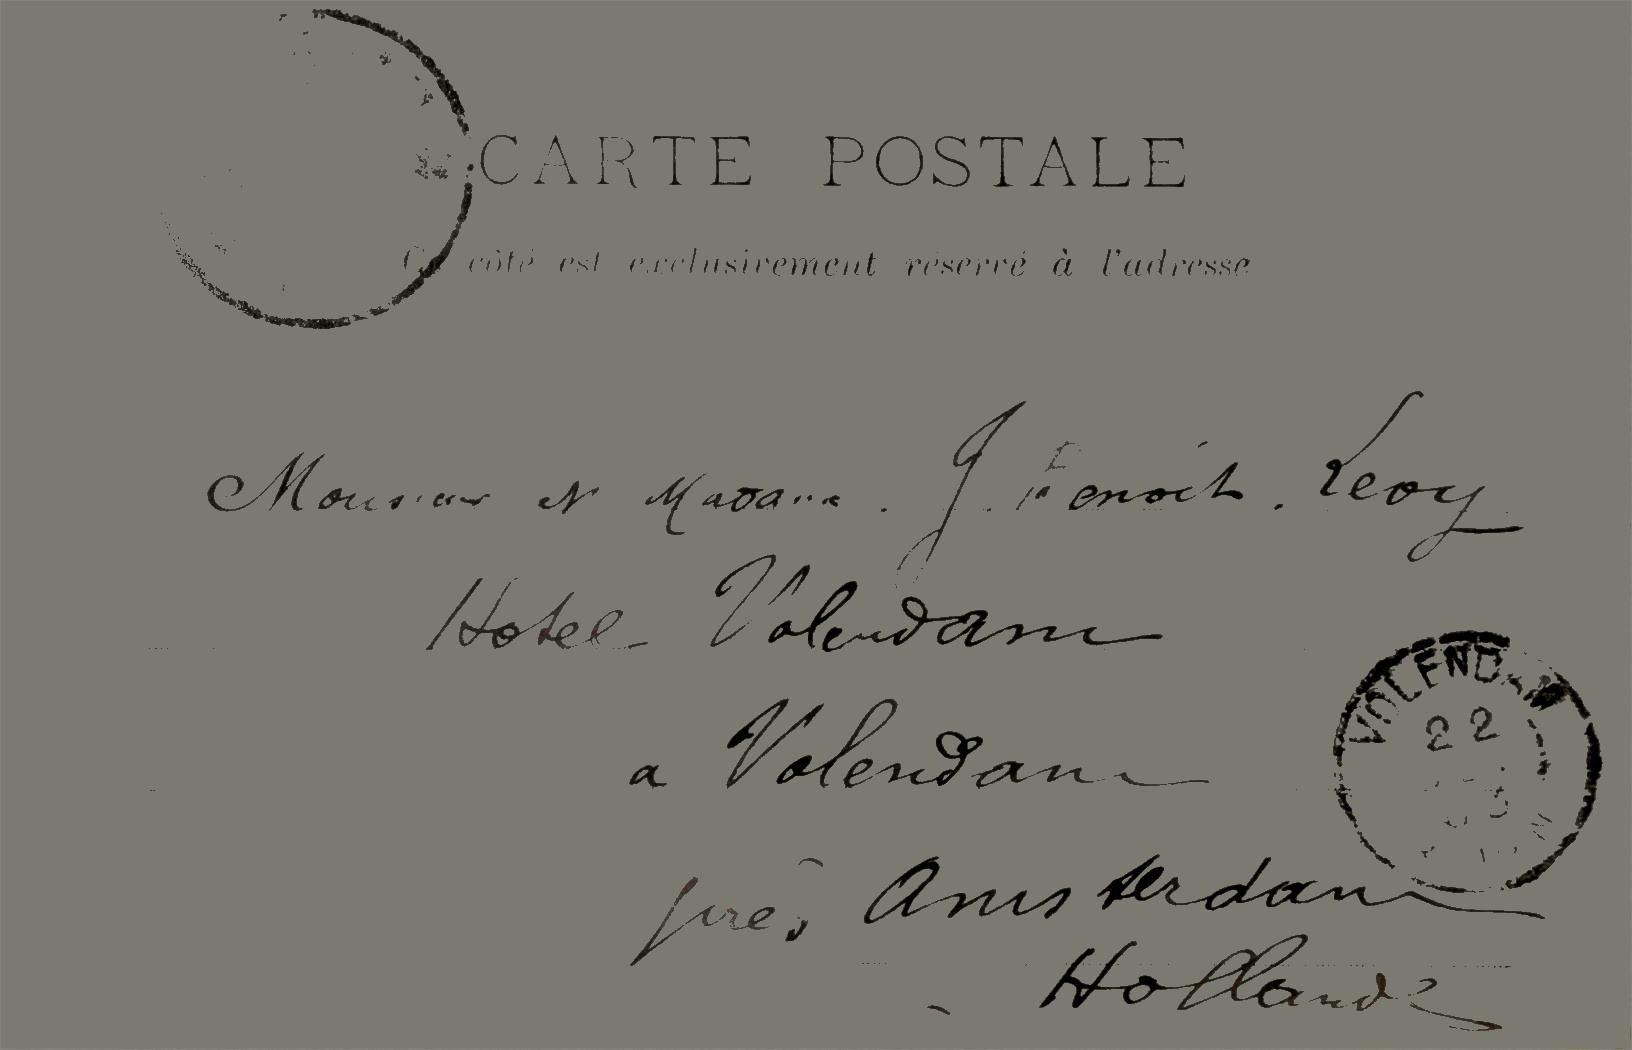 CARTE POSTALE
Ce côté est exclusivement réservé à l'adresse
Monsieur et Madame J. Benoit. Levy
Hotel Volendam
a Volendam
VOLENDAM
22
près Amsterdam
Hollande